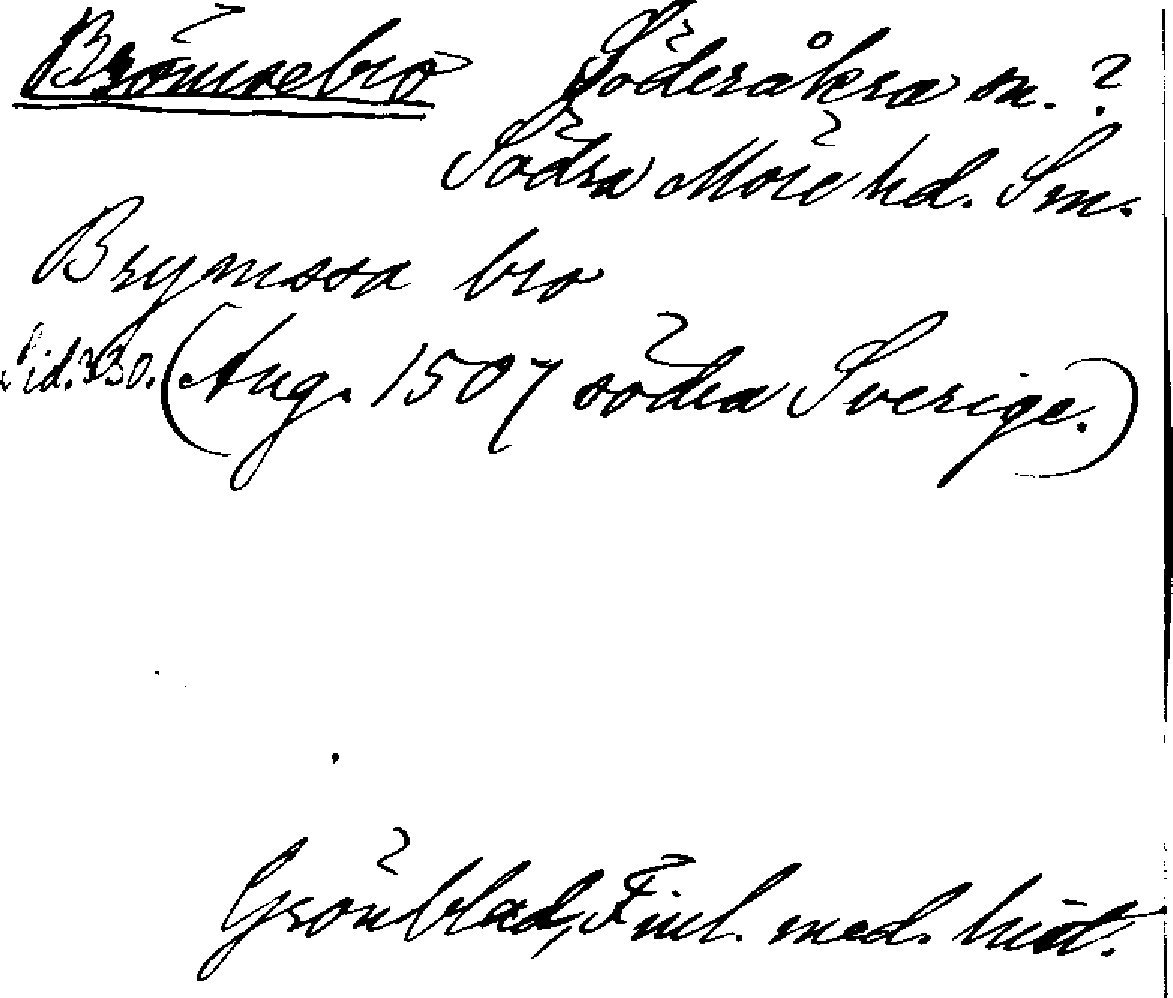 Brömsebro Söderåkra sn. ?
Södra Möre hd. Sm.
Brymssa bro
Sid. 330. (Aug. 1507 södra Sverige.)
Grönblad, Finl. med. hist.